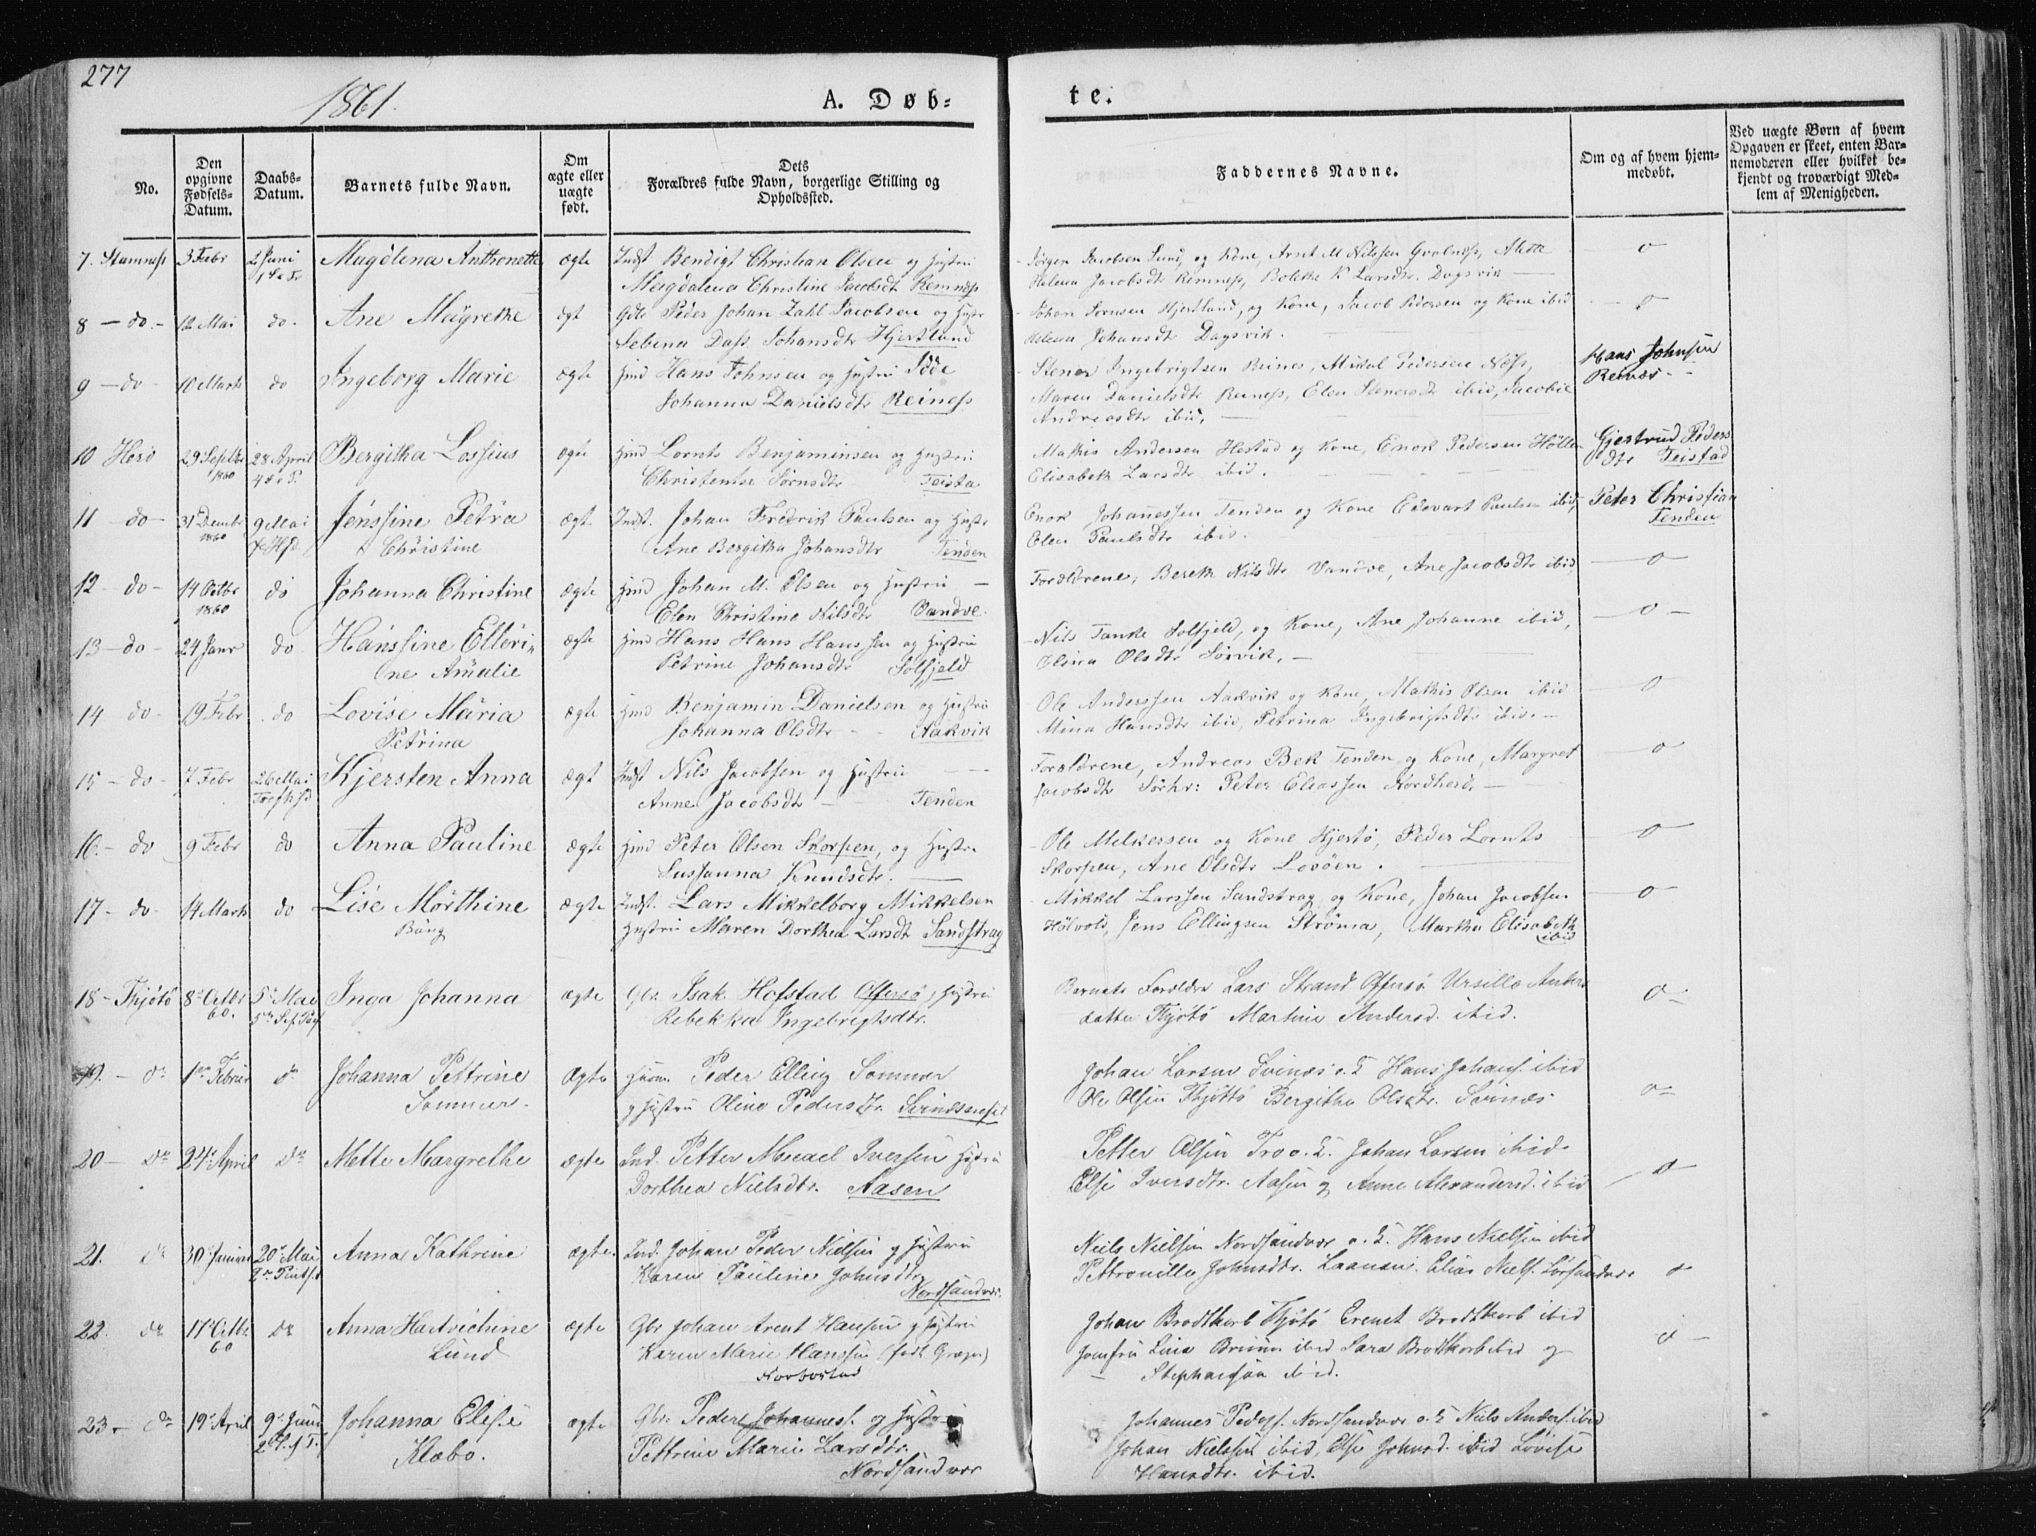 277
1861.
A. Døb-
te.
No.
Den opgivne Fødsels-Datum.
Daabs-Datum.
Barnets fulde Navn.
Om ægte eller uægte født.
Dets Forældres fulde Navn, borgerlige Stilling og Opholdssted.
Faddernes Navne.
Om og af hvem hjem-medøbt.
Ved uægte Børn af hvem Opgaven er skeet, enten Bar-nemoderen eller hvilket be-kjendt og troværdigt Med-lem af Menigheden.
7. Stamness 3 Febr 2 Juni Magdlena Anthonette ægte Indst Bendigt Christian Olsen og Hustru
Magdalena Christine Jacobsdt Remness
Jørgen Jacobsen Lund, og Kone, Arnt M Nilssen
Helena Jacobsdt Remness, K Larsdtr. Dagsvik
o
8 - do - 12 Mai do Ane Magrethe ægt Peder Johan Zahl Jacobsen og Hustr
Johansdtr Hjertland
Johan Hjertland, og Kone, Jacob Pedersen og Kone ibid
Johansdt Dagsvik.
o
9 - do - 10 Marts do Ingeborg Marie ægte Hmd Hans Johnsen og Hustru
Johanna Danielsdtr Reiness
Stener Ingebrigtsen Reines, Mikal Pedersen Ness,
Maren Danielsdtr Reiness, Elen Stenersdtr ibid, Jacobie
Andreasdtr ibid.
Hans Johnsen
Reines
10 Herø 29 Septbr 1860 28 April Bergitha Lossius ægte Hmd Lornts Benjaminsen og Hustru
Christense Sørnsdtr Teista
Mathis Andersen Hestad og Kone, Enok Pedersen
Elisabeth Larsdtr ibid.
Gjertrud Peders
dtr Teistad
11 - do - 31 Decembr 1860 9 Mai Jenssine Petra
Christine
ægt. Indst. Johan Fredrik Paulsen og Hustr
Ane Bergitha Johansdtr Tenden
Enok Johannessen Tenden og Kone Edevart Paulsen ibid,
Elen Paulsdtr ibid.
Peter Christian
Tenden
12 - do - 14 Octbr 1860 do Johanna Christine ægte Hmd Johan M. Olsen og Hustru
Elen Christina Nilsdtr Vandve.
Forældrene, Bereth Nilsdtr Vandve, Ane Jacobsdtr ibid,
o
13 - do - 24 Janr do Hanssine Elleri-
ne Amalie
ægte Hmd Hans Hans Hanssen og Hustru
Petrine Johansdtr Solfjeld
Nils Tanke Solfjeld, og Kone, Ane Johanne ibid,
Elina Olsdtr Sørvik.
o
14 do 19 Febr do Lovise Maria
Petrina
ægte Hmd Benjamin Danielsen og Hustru
Johanna Olsdtr Aakvik
Ole Anderssen Aakvik og Kone, Mathis Olsen ibid
Mina Hansdtr ibid, Petrina Ingebrigtsdtr ibid.
o
15 - do 7 Febr 26 Mai Kjersten Anna ægt Indst Nils Jacobsen og Hustru
Anne Jacobsdtr Tenden
Forældrene, Andreas Bek Tenden og Kone, Margret
Jacobsdtr Sørhr: Peter Eliassen Nordherø.
o
16. - do 9 Febr do Anna Pauline ægte Hmd Peter Olsen Skorpen, og Hustru
Sussanna Knudsdtr.
Ole Melkersen og Kone Hjertø, Peder Lornts
Skorpen, Ane Olsdtr Lovøen.
o
17 - do - 14 Marts do Lise Mørthine
Bang
ægte Indst. Lars Mikkelborg Mikkelsen
Hustru Maren Dorthea Larsdt Sandstrag
Mikkel Larssen Sandstrag og Kone, Johan Jacobsen
Holvold, Jens Ellingsen Strøma, Martha Elisabeth
ibid
o
18 - Thjøtø 8 Octbr 60. 5 Mai Inga Johanna ægte Gbr. Isak Hofstad Offersø, Hustru
Rebekka Ingebrigtsdtr.
Barnets Forældre Lars Strand Offersø Ursille Anders
datter Thjøtø Martine Andersd. ibid.
o
19. - do 1 Februar do Johanna Pettrine
Sommer.
ægte Huusm. Peder Elling Sommer
og Hustru Oline Pedersdtr.
Johan Larsen Svinnes o. K Hans Johans. ibid
Ole Olsen Thjøttø Bergitha Olsdtr. Svines
o
20 - do 24 April do Mette Margrethe ægte Ind. Petter Micael Iversen Hustru
Dorthea Nielsdtr. Aasen
Petter Olsen Tro o. K. Johan Larsen ibid.
Else Iversdtr. Aasen og Anne Alexandersd. ibid
o
21. do 30 Januar 20 Mai Anna Kathrine ægte. Ind. Johan Peder Nielsen og Hustru
Karen Pauline Johnsdtr
Nordsandvær.
Niels Nielsen Nordsandvær o. K. Hans Nielsen ibid
Pettronille Johnsdtr. Laanan. Elias Niels. Sørsandvær
o
22. do 17 Octbr 60 do Anna Hartvichine
Lund
ægte Gbr Johan Arent Hansen og Hustru
Karen Marie Hanssen (født Græger)
Johan Brodtkorb Thjøtø Brodtkorb ibid
Jomfru Lina ibid Sara Brodtkorb ibid og
ibid.
o
23 - do 19 April 9 Juni Johanna Elise
Klæbo.
ægte Gbr. Peder Johannes. og Hustru
Pettrine Marie Larsdtr.
Nordsandvær
Johannes Peders. Nordsandvær o. K Niels Anders. ibid
Johan Nielssen ibid, Else Johnsd. ibid Lovise
Hansdtr. ibid.